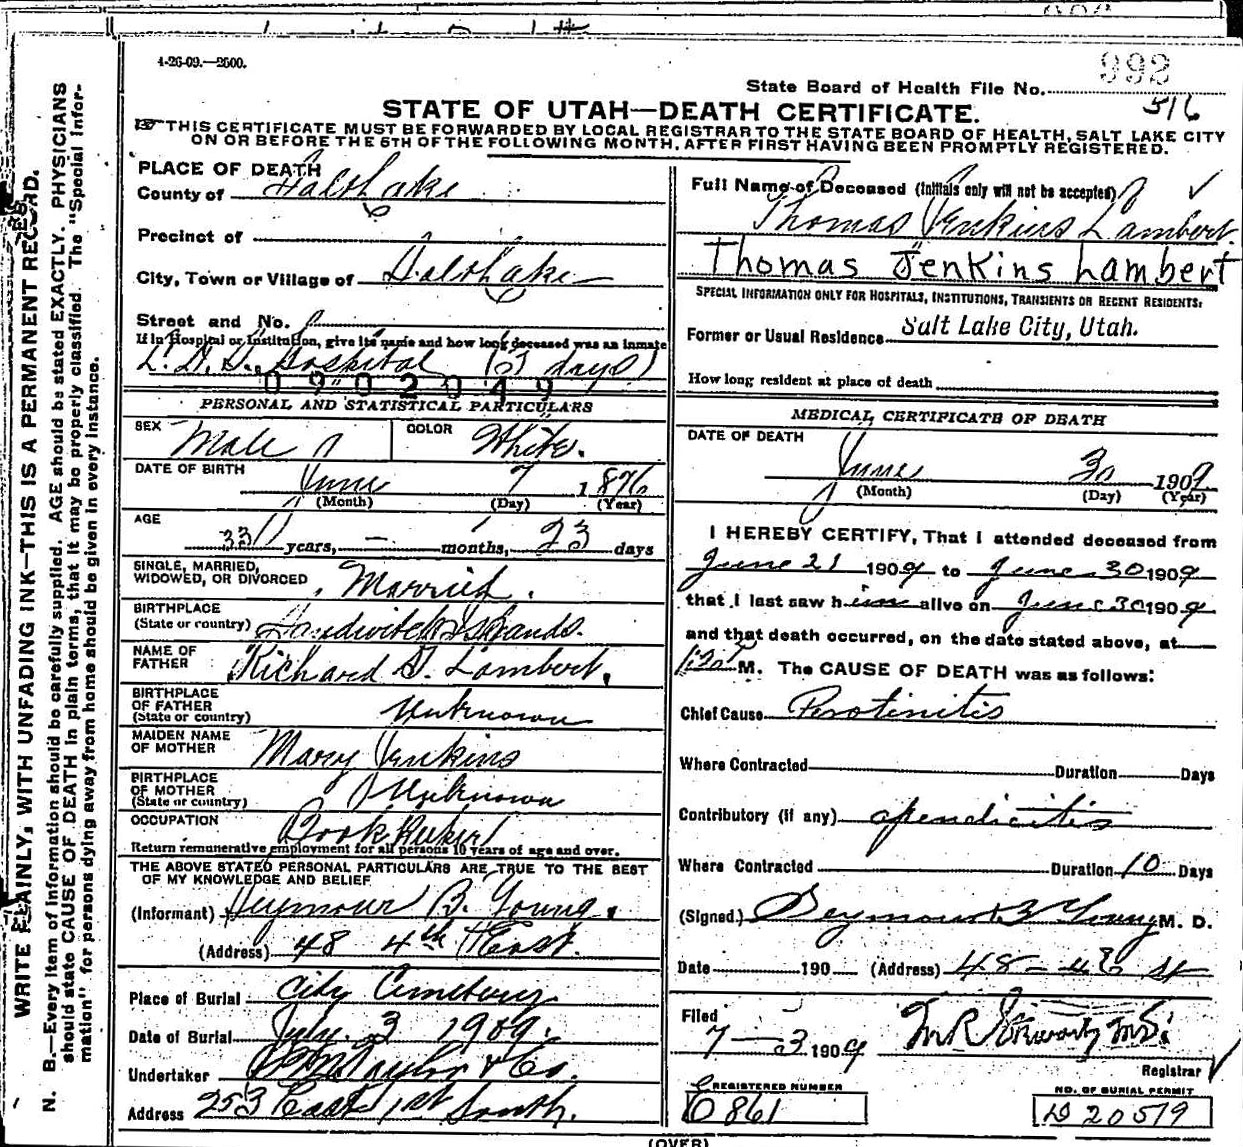 4-26-09.—2600.
992
State Board of Health File No.
516
STATE OF UTAH—DEATH CERTIFICATE.
THIS CERTIFICATE MUST BE FORWARDED BY LOCAL REGISTRAR TO THE STATE BOARD OF HEALTH, SALT LAKE CITY
ON OR BEFORE THE 5TH OF THE FOLLOWING MONTH, AFTER FIRST HAVING BEEN PROMPTLY REGISTERED.
PLACE OF DEATH
County of Salt Lake
Precinct of
City, Town or Village of Salt Lake
Street and No.
If in Hospital or Institution, give its name and how long deceased was an inmate
L. D. S. Hospital ( days)
0902049
PERSONAL AND STATISTICAL PARTICULARS
SEX Male
COLOR White.
DATE OF BIRTH June 7 1876
(Month) (Day) (Year)
AGE
33 years, — months, 23 days
SINGLE, MARRIED,
WIDOWED, OR DIVORCED Married.
BIRTHPLACE
(State or country) Sandwitch Islands.
NAME OF
FATHER Richard G. Lambert.
BIRTHPLACE
OF FATHER
(State or country) Unknown
MAIDEN NAME
OF MOTHER Mary Jenkins
BIRTHPLACE
OF MOTHER
(State or country) Unknown
OCCUPATION Book Keeker
Return remunerative employment for all persons 10 years of age and over.
THE ABOVE STATED PERSONAL PARTICULARS ARE TRUE TO THE BEST
OF MY KNOWLEDGE AND BELIEF
(Informant) Seymour B. Young.
(Address) 48 4th East.
Place of Burial City Cemetery
Date of Burial July. 3 1909.
Undertaker Taylor & Co.
Address 253 East 1st South.
Full Name of Deceased (Initials only will not be accepted)
Thomas Jenkins Lambert.
Thomas Jenkins Lambert
SPECIAL INFORMATION ONLY FOR HOSPITALS, INSTITUTIONS, TRANSIENTS OR RECENT RESIDENTS:
Former or Usual Residence Salt Lake City, Utah.
How long resident at place of death
MEDICAL CERTIFICATE OF DEATH
DATE OF DEATH
June 30 1909
(Month) (Day) (Year)
I HEREBY CERTIFY, That I attended deceased from
June 21 1909 to June 30 1909
that I last saw him alive on June 30 1909
and that death occurred, on the date stated above, at
M. The CAUSE OF DEATH was as follows:
Chief Cause Protinitis
Where Contracted Duration Days
Contributory (if any) apendicitis
Where Contracted Duration 10 Days
(Signed.) Seymour B Young M. D.
Date 190 (Address) 48 - 4 E St
Filed
7 — 3 1909
Registrar
REGISTERED NUMBER
0861
NO. OF BURIAL PERMIT
D 20519
(OVER)
WRITE PLAINLY, WITH UNFADING INK—THIS IS A PERMANENT RECORD.
N. B.—Every item of information should be carefully supplied. AGE should be stated EXACTLY. PHYSICIANS
should state CAUSE OF DEATH in plain terms, that it may be properly classified. The "Special Infor-
mation" for persons dying away from home should be given in every instance.